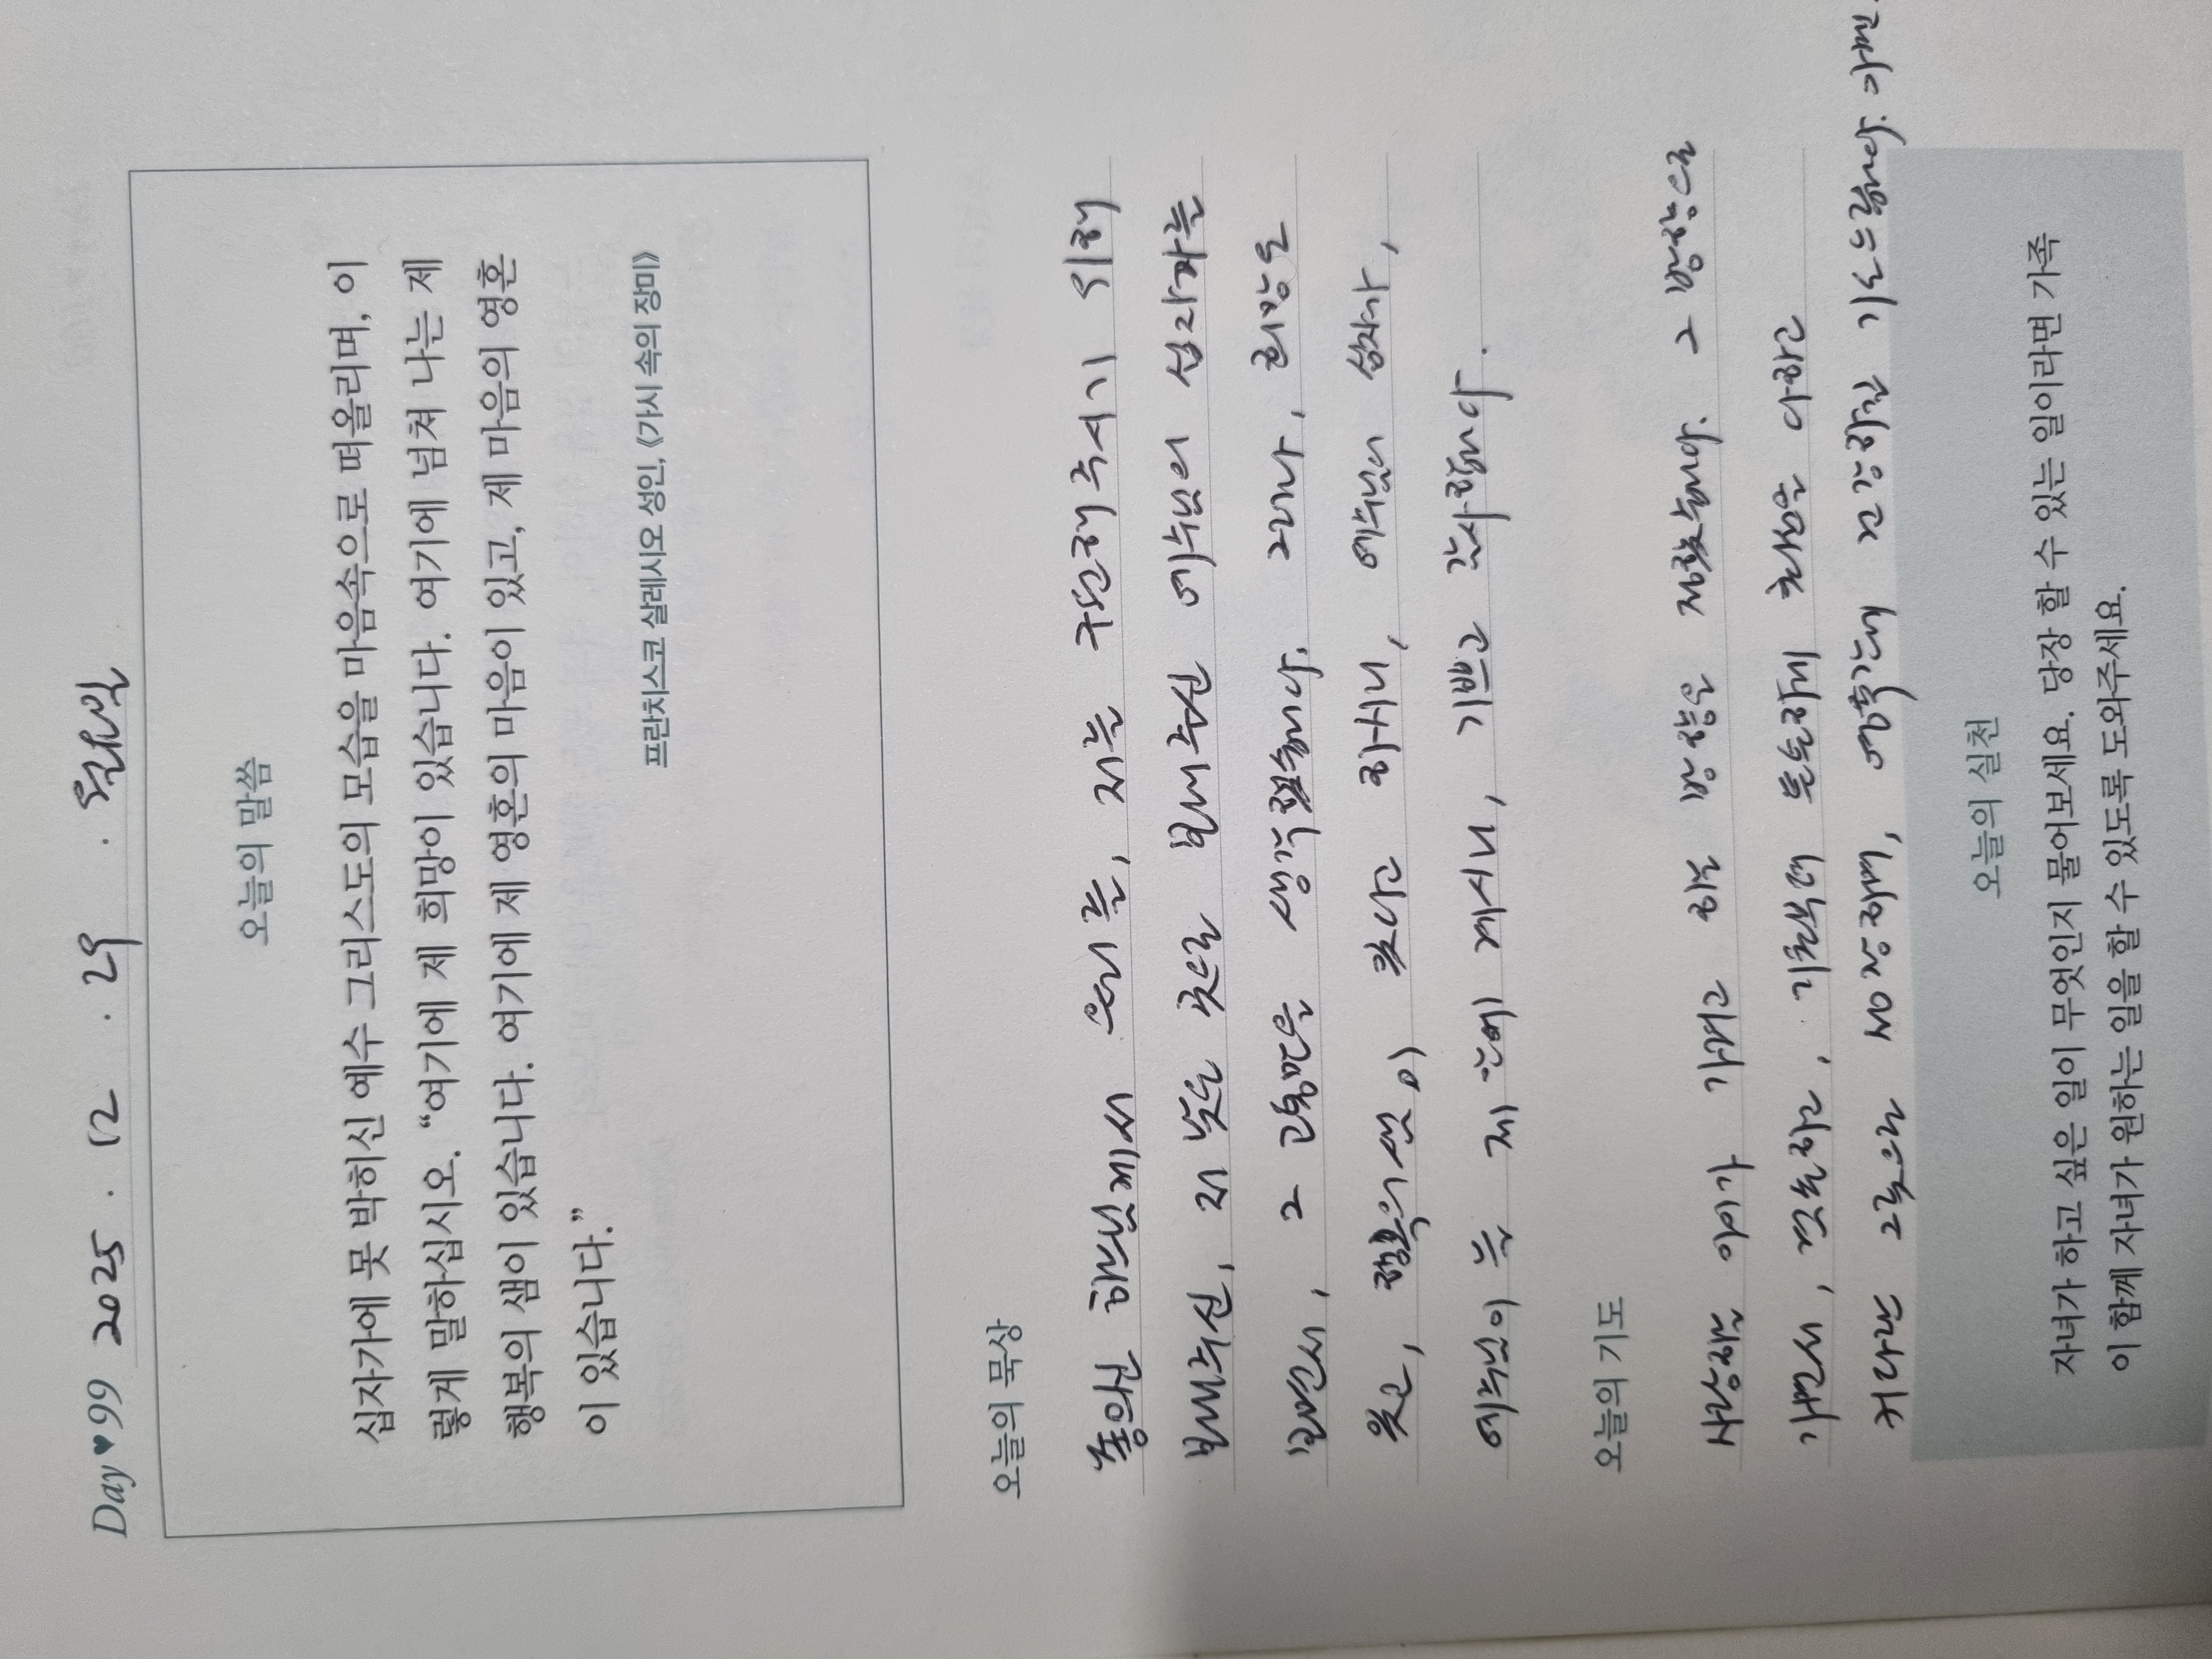 Day♥99 2025 . 12 . 29 . 월요일
오늘의 말씀
십자가에 못 박히신 예수 그리스도의 모습을 마음속으로 떠올리며, 이
렇게 말하십시오. “여기에 제 희망이 있습니다. 여기에 넘쳐 나는 제
행복의 샘이 있습니다. 여기에 제 영혼의 마음이 있고, 제 마음의 영혼
이 있습니다.”
프란치스코 살레시오 성인, 《가시 속의 장미》
오늘의 묵상
하느님께서 우리를, 저를 구원해주시기 위해
보내주신, 제 낮은 곳으로 보내주신 예수님의 십자가를
보면서, 그 고통만을 생각했습니다. 그러나, 희망도
있고, 행복의 샘이 있다고 하시니, 예수님의 십자가,
예수님이 늘 제 안에 계시니, 기쁘고 감사합니다.
오늘의 기도
아이가 가려고 하는 방향을 정했습니다. 그 방향으로
가면서, 겸손하고, 기초부터 튼튼하게 최선을 다하고
그릇으로 성장하며, 영육간에 건강하길 기도드립니다. 아멘.
오늘의 실천
자녀가 하고 싶은 일이 무엇인지 물어보세요. 당장 할 수 있는 일이라면 가족
이 함께 자녀가 원하는 일을 할 수 있도록 도와주세요.